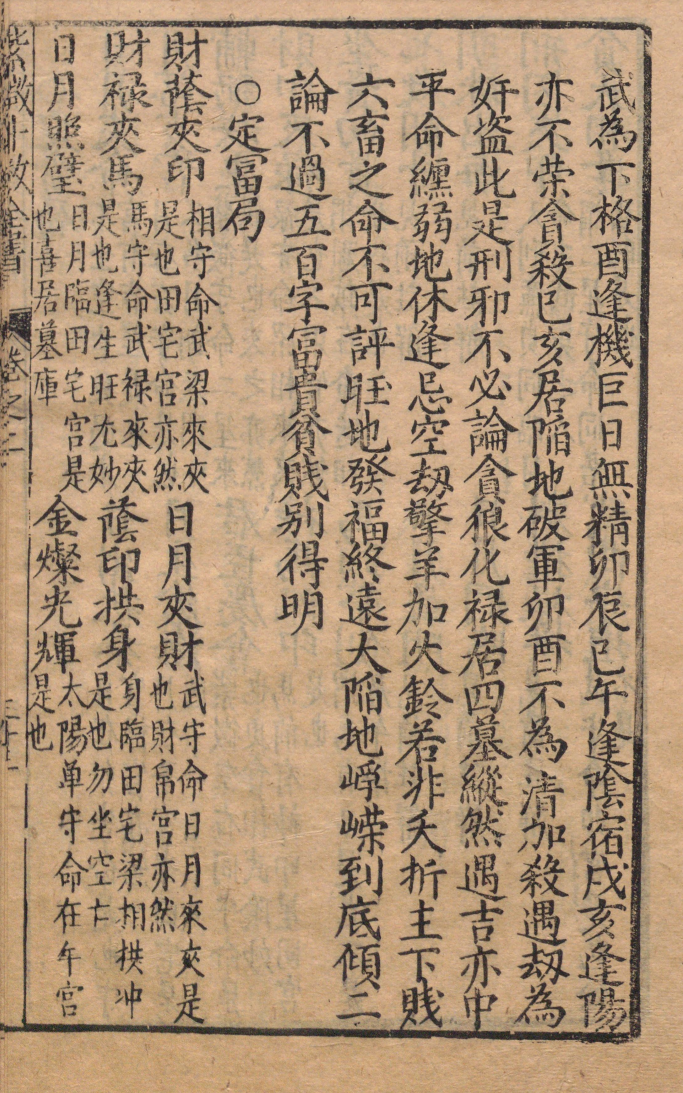 武為下格酉逢機巨日無精卯辰巳午逢陰宿戌亥逢陽
亦不荣貪殺巳亥居陷地破軍卯酉不為清加殺遇劫為
奸盗此是刑邪不必論貪狼化禄居四墓縱然遇吉亦中
平命纏弱地休逢忌空劫擎羊加火鈴若非夭折主下賤
六畜之命不可評旺地發福終遠大陷地崢嶸到底傾二
論不過五百字富貴貧賎别得明
○定冨局
財蔭夾印
相守命武梁來夾
是也田宅宫亦然
日月夾財
武守命日月來夾是
也財帛宫亦然
財禄夾馬
馬守命武禄來夾
是也逢生旺尤妙
蔭印拱身
身臨田宅梁相拱冲
是也勿坐空亡
日月照璧
日月臨田宅宫是
也喜居墓庫
金燦光輝
太陽单守命在午宫
是也
紫微斗数全書
卷之二